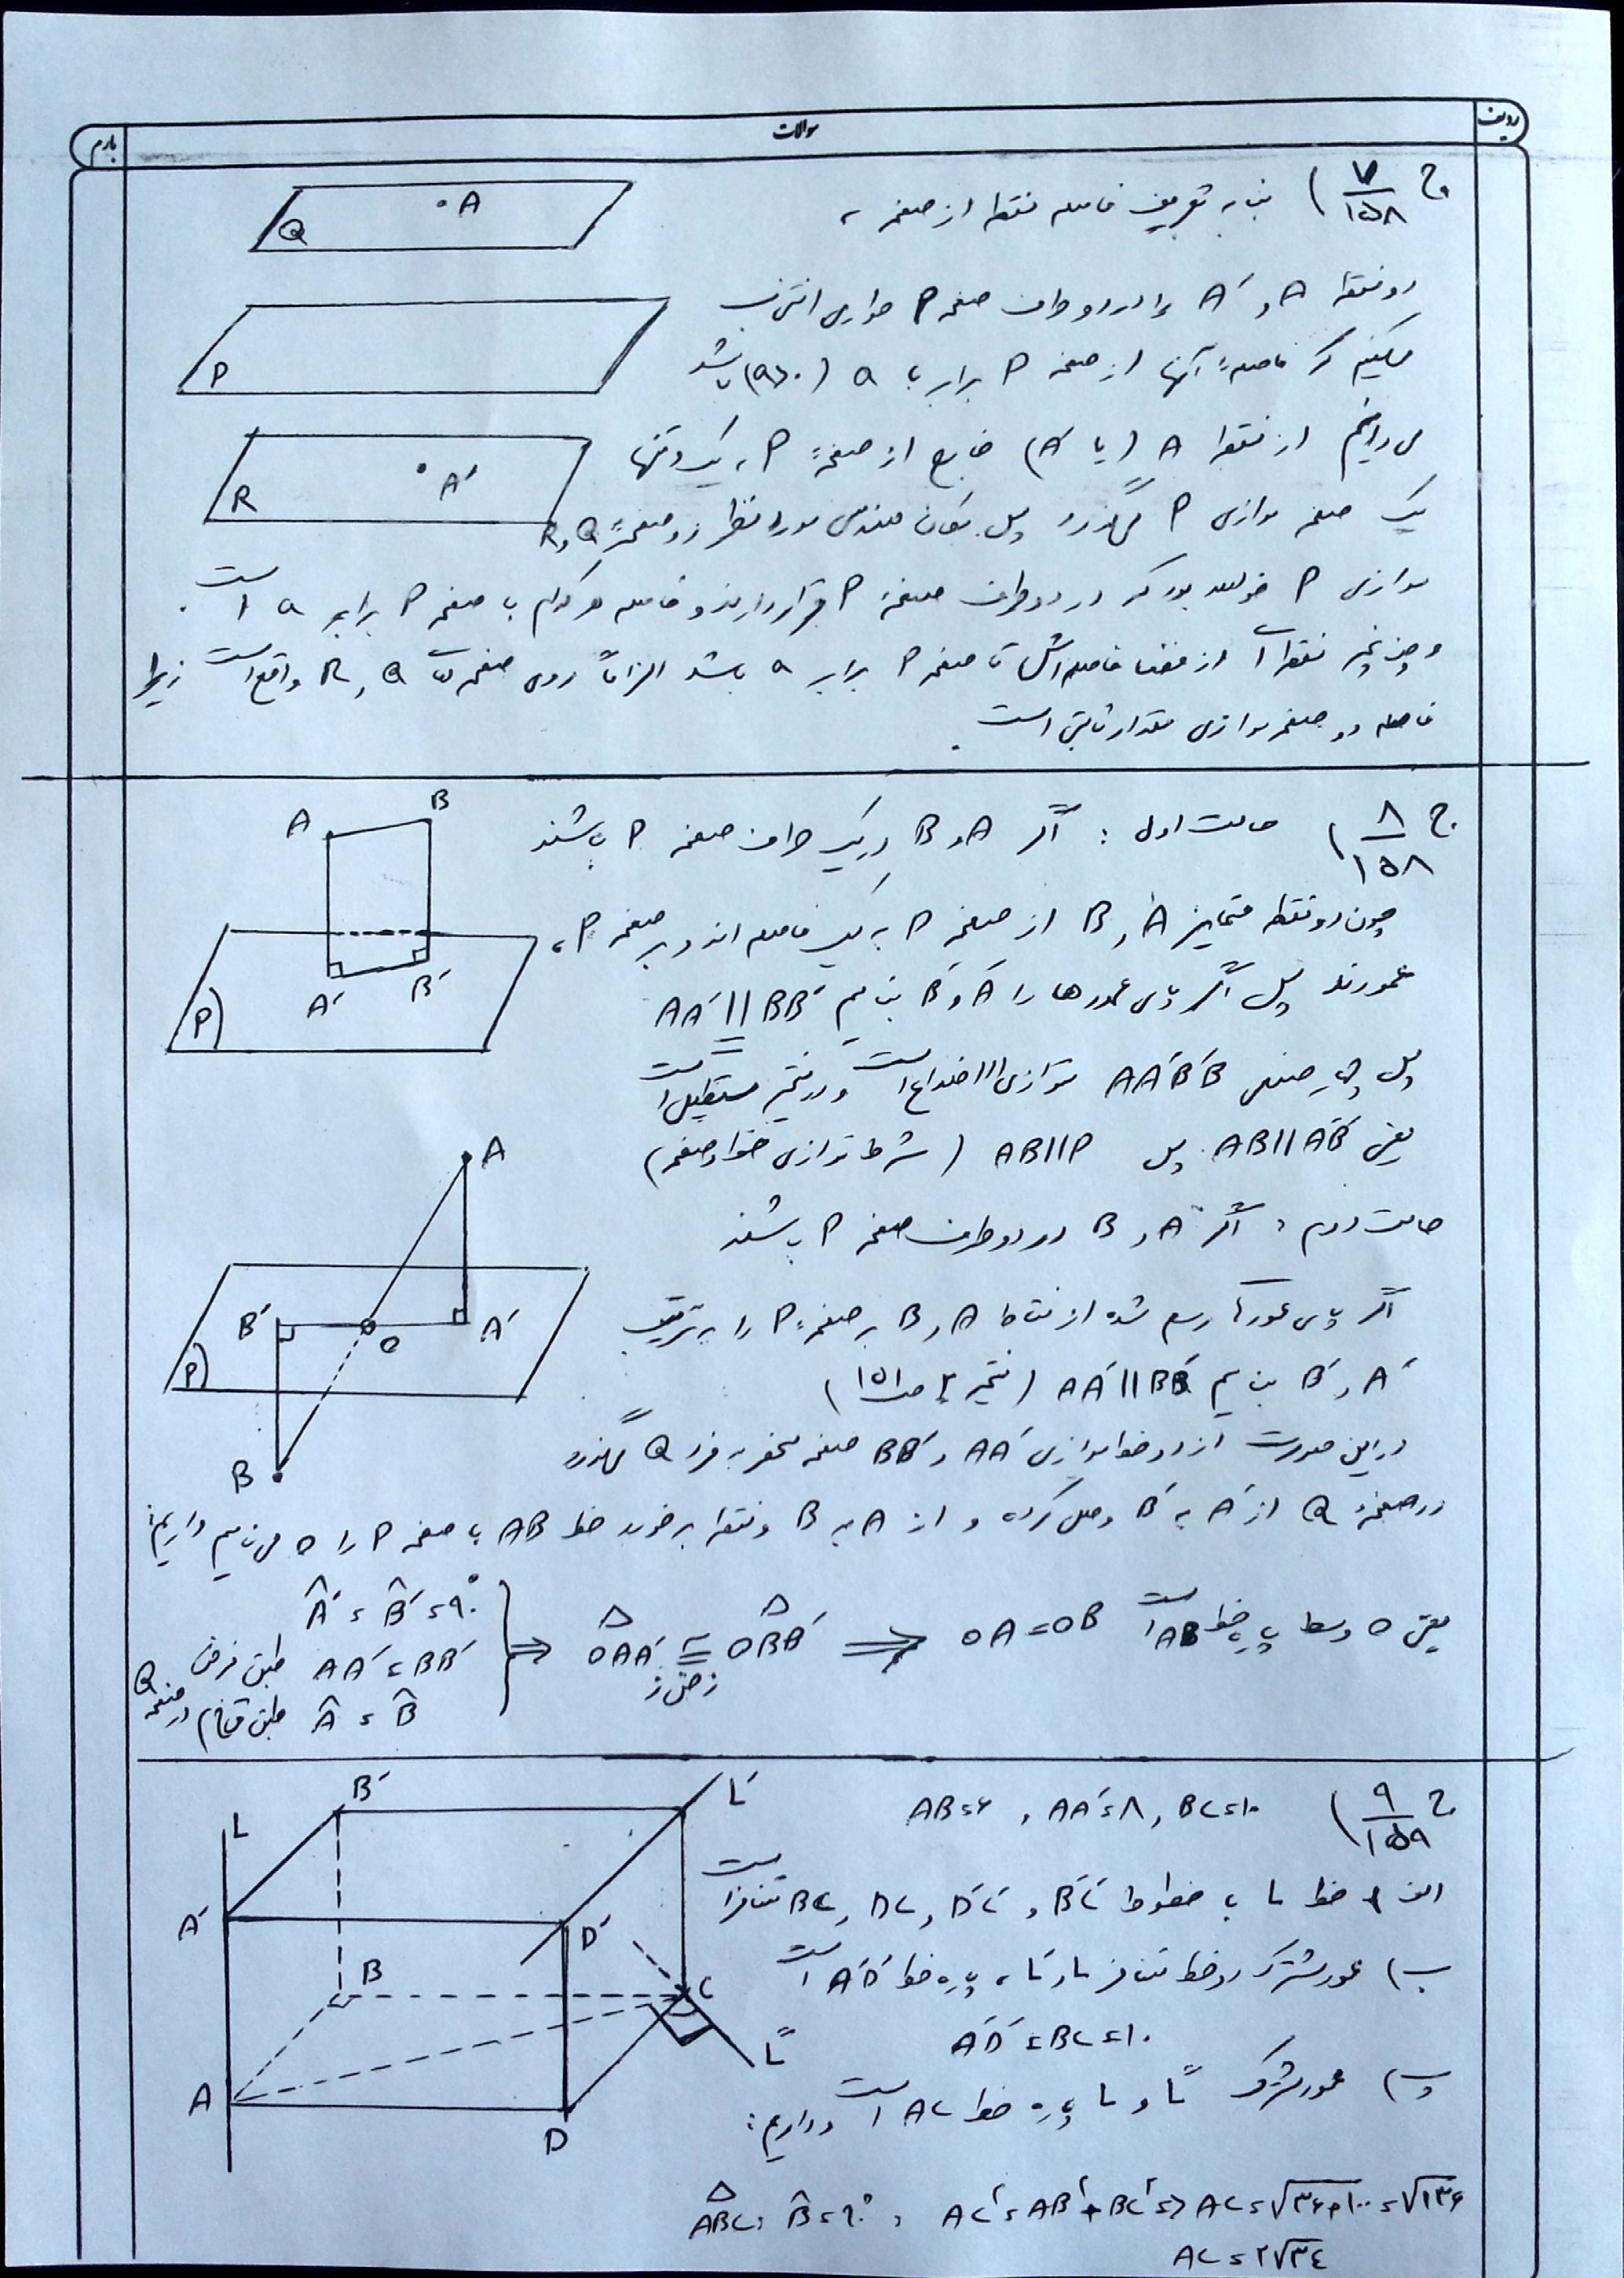 ردیف
سوالات
بارم
ج ۷/۱۵۸) بنا به تعریف فاصله نقطه از صفحه ،
Q
A
دو نقطه A و A′ را در دو طرف صفحه P طوری انتخاب
P
میکنیم که فاصلهٔ آنها از صفحه P برابر با a (a>۰) باشد
می دانیم از نقطه A (یا A′) خارج از صفحهٔ P ، یک و تنها
R
A′
یک صفحه موازی P میگذرد پس مکان هندسی مورد نظر دو صفحهٔ Q و R
موازی P خواهد بود که در دو طرف صفحهٔ P قرار دارند و فاصله هر کدام با صفحه P برابر a است.
و چنانچه نقطه‌ای از فضا فاصله‌اش تا صفحه P برابر a باشد الزاماً روی صفحات Q و R واقع است زیرا
فاصله دو صفحه موازی مقدار ثابتی است.
ج ۸/۱۵۸) حالت اول : اگر A و B در یک طرف صفحه P باشند
A
B
A′
B′
P
چون دو نقطه متمایز A و B از صفحه P به یک فاصله اند و بر صفحه P ،
عمودند پس اگر پای عمودها را A′ و B′ بنامیم AA′ || BB′
پس چهارضلعی AA′B′B متوازی‌الاضلاع است و در نتیجه مستطیل است
یعنی AB||A′B′ پس AB||P (شرط توازی خط و صفحه)
حالت دوم : اگر A و B در دو طرف صفحه P باشند
A
B′
O
A′
P
B
اگر پای عمودهای رسم شده از نقاط A و B بر صفحهٔ P را به ترتیب
A′ و B′ بنامیم AA′||BB′ (نتیجه ص ۱۵۱)
در این صورت از دو خط موازی AA′ و BB′ صفحه منحصر به فرد Q میگذرد
در صفحهٔ Q از A′ به B′ وصل کرده و از A به B و نقطه برخورد خط AB با صفحه P را O می نامیم داریم:
Â′ = B̂′ = ۹۰°
AA′ = BB′ طبق فرض
Â = B̂ طبق قضیه در صفحه Q
⇒ OAA′ ≅ OBB′ ⇒ OA = OB یعنی O وسط پاره خط AB است
ز ض ز
ج ۹/۱۵۹) AB=۶ , AA′=۸ , BC=۱۰
L
B′
L′
A′
D′
B
C
L″
A
D
الف) خط L با خطوط B′C′ و D′C′ و DC و BC متنافر است
ب) عمود مشترک دو خط متنافر L و L′ ، پاره خط A′D′ است
A′D′ = BC = ۱۰
پ) عمود مشترک L″ و L پاره خط AC است و داریم:
ABC: B̂=۹۰° , AC²=AB²+BC² => AC=√۳۶+۱۰۰ = √۱۳۶
AC = ۲√۳۴